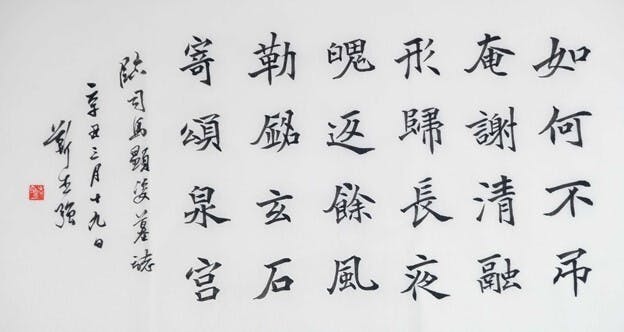 如何不吊
奄謝清融
形歸長夜
魄返餘風
勒銘玄石
寄頌泉宫
臨司馬顯姿墓誌
辛丑三月十九日